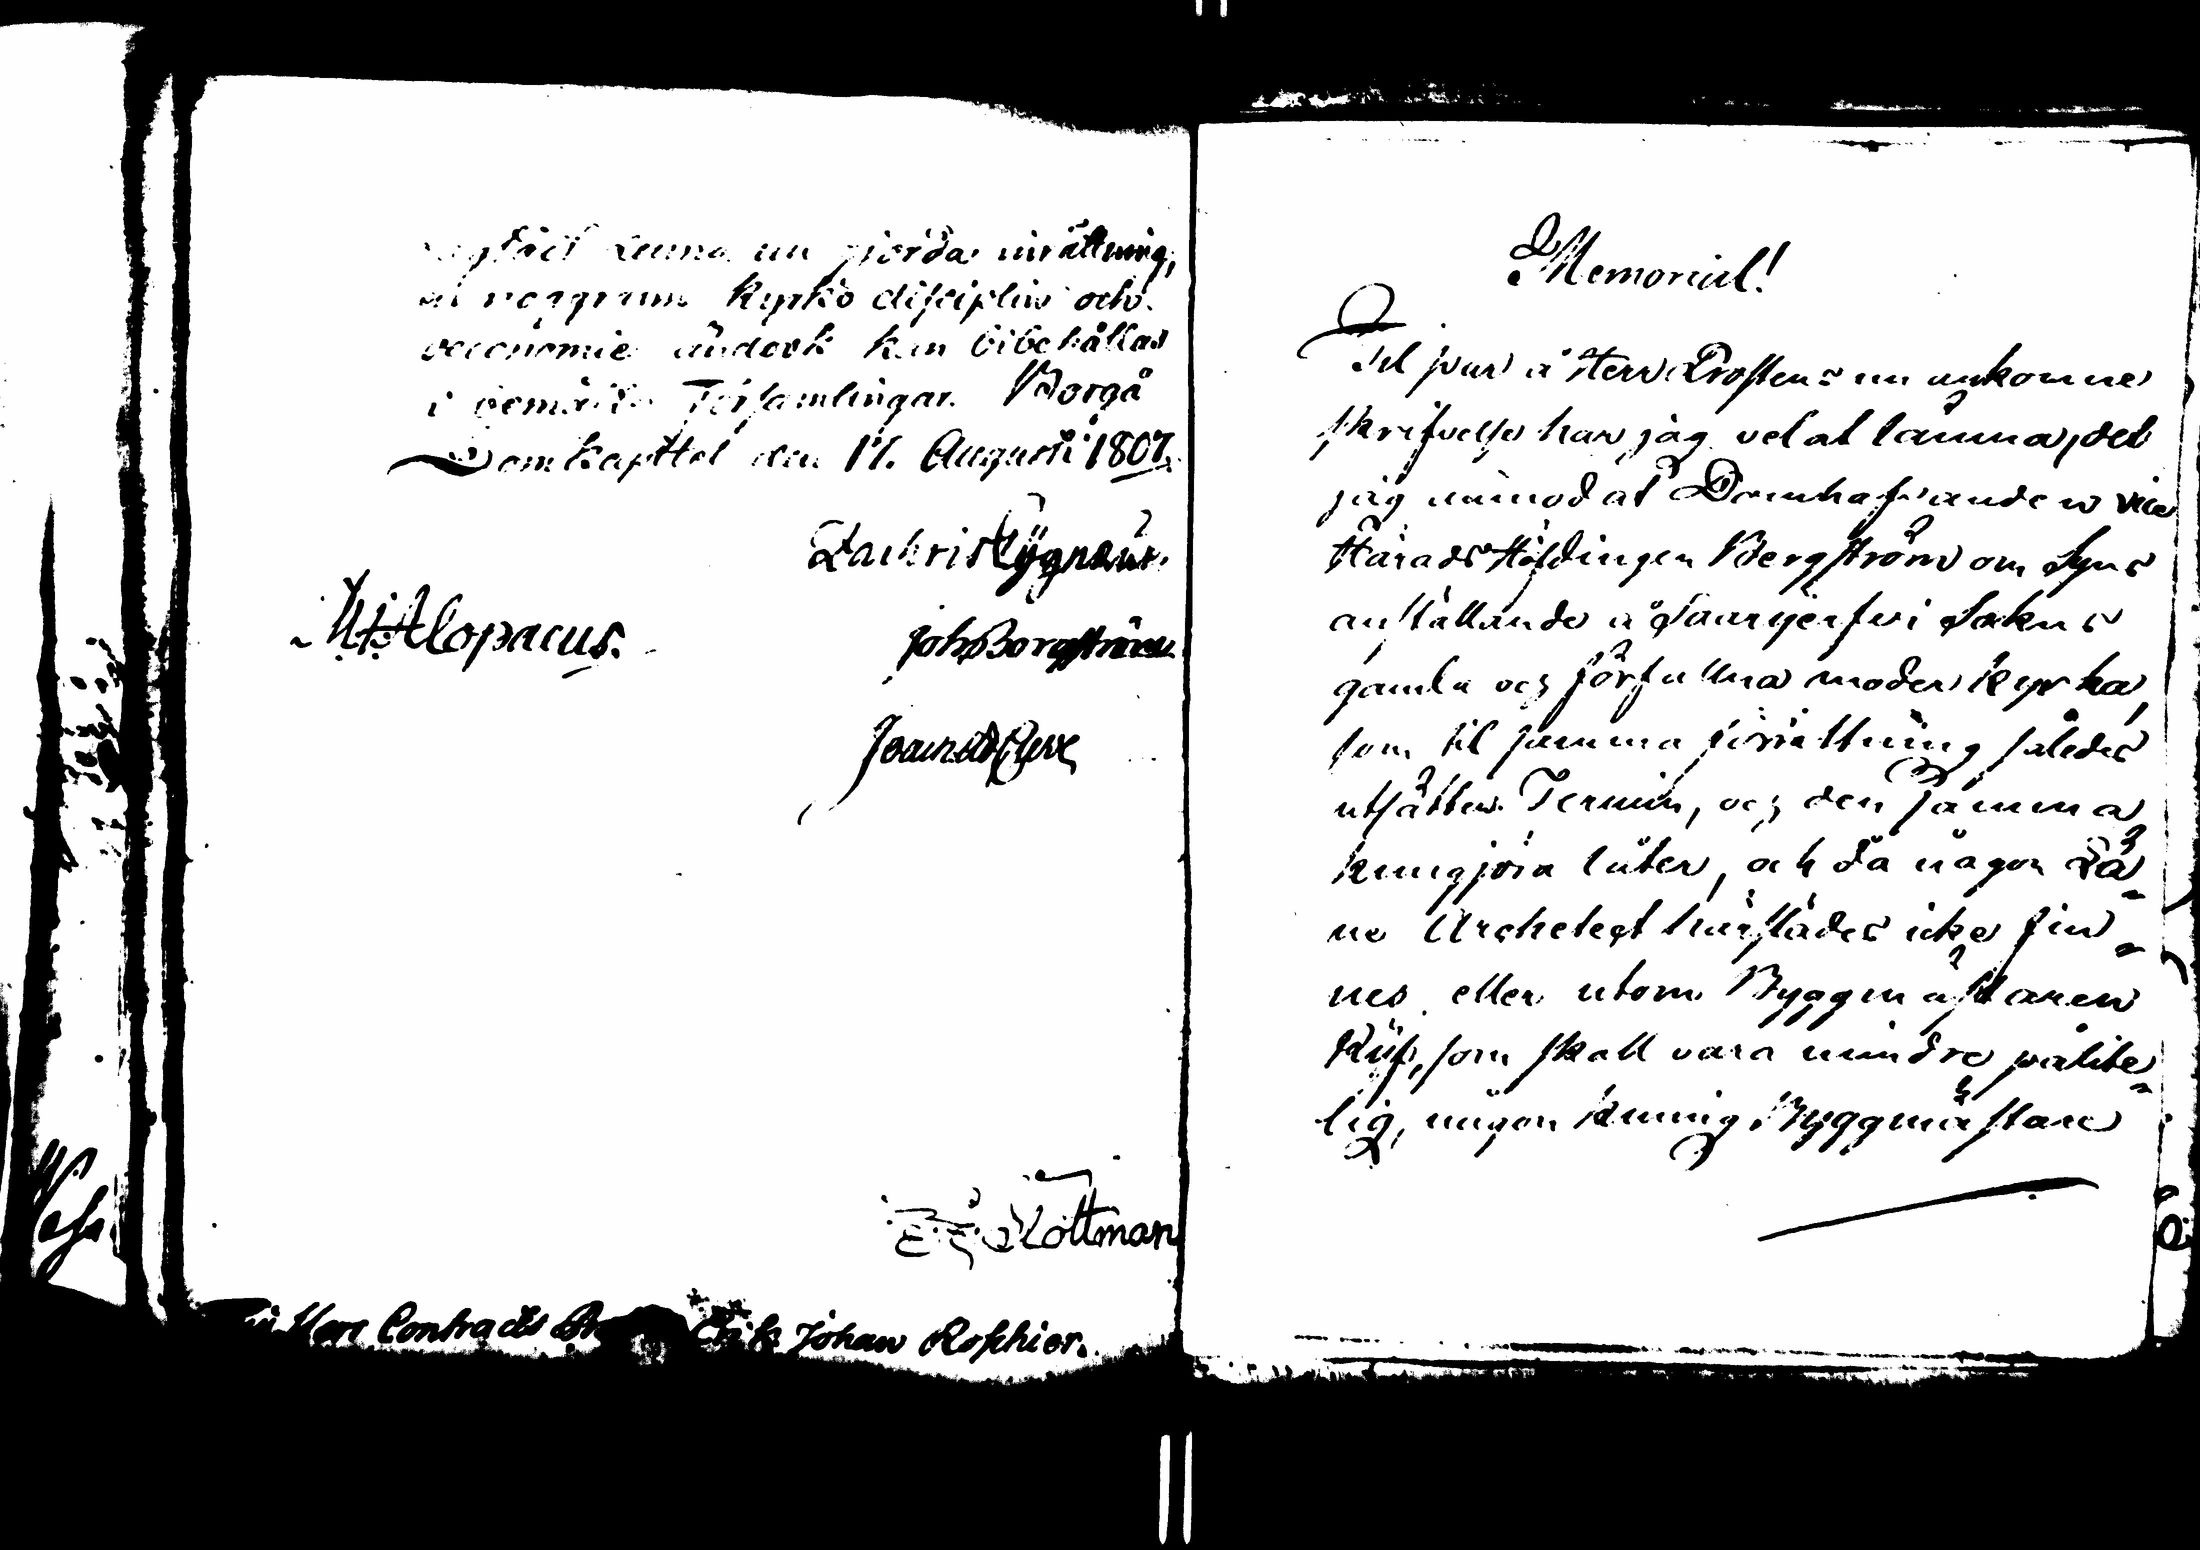 gjorda inrättning,
noggrann kyrko disciplin och
oeconomie ändock kan bibehållas
i Församlingar. Borgå
Domkapittel den 17. Augusti 1807.
Zachris Cygnæus.
M: Alopæus. Joh: Borgström
E. E. Kottman
Herr Contracts Erik Johan Roschier.
Memorial!
Til svar å Herr Prostens nu ankomne
skrifvelse har jag vel at lämna, det
jag anmodat Domhafvanden vice
Härads Höfdingen Bergström om Syns
anställande å Saarijerfvi Sokns
gamla och förfallna moder kyrka,
som til samma förrättning således
utsätter Termin, och den samma
kungjöra låter, och då någon Lä-
ne Architect härstädes icke fin-
nes eller utom Byggmästaren
Kijf, som skall vara mindre pålite-
lig, någon kunnig Byggmästare